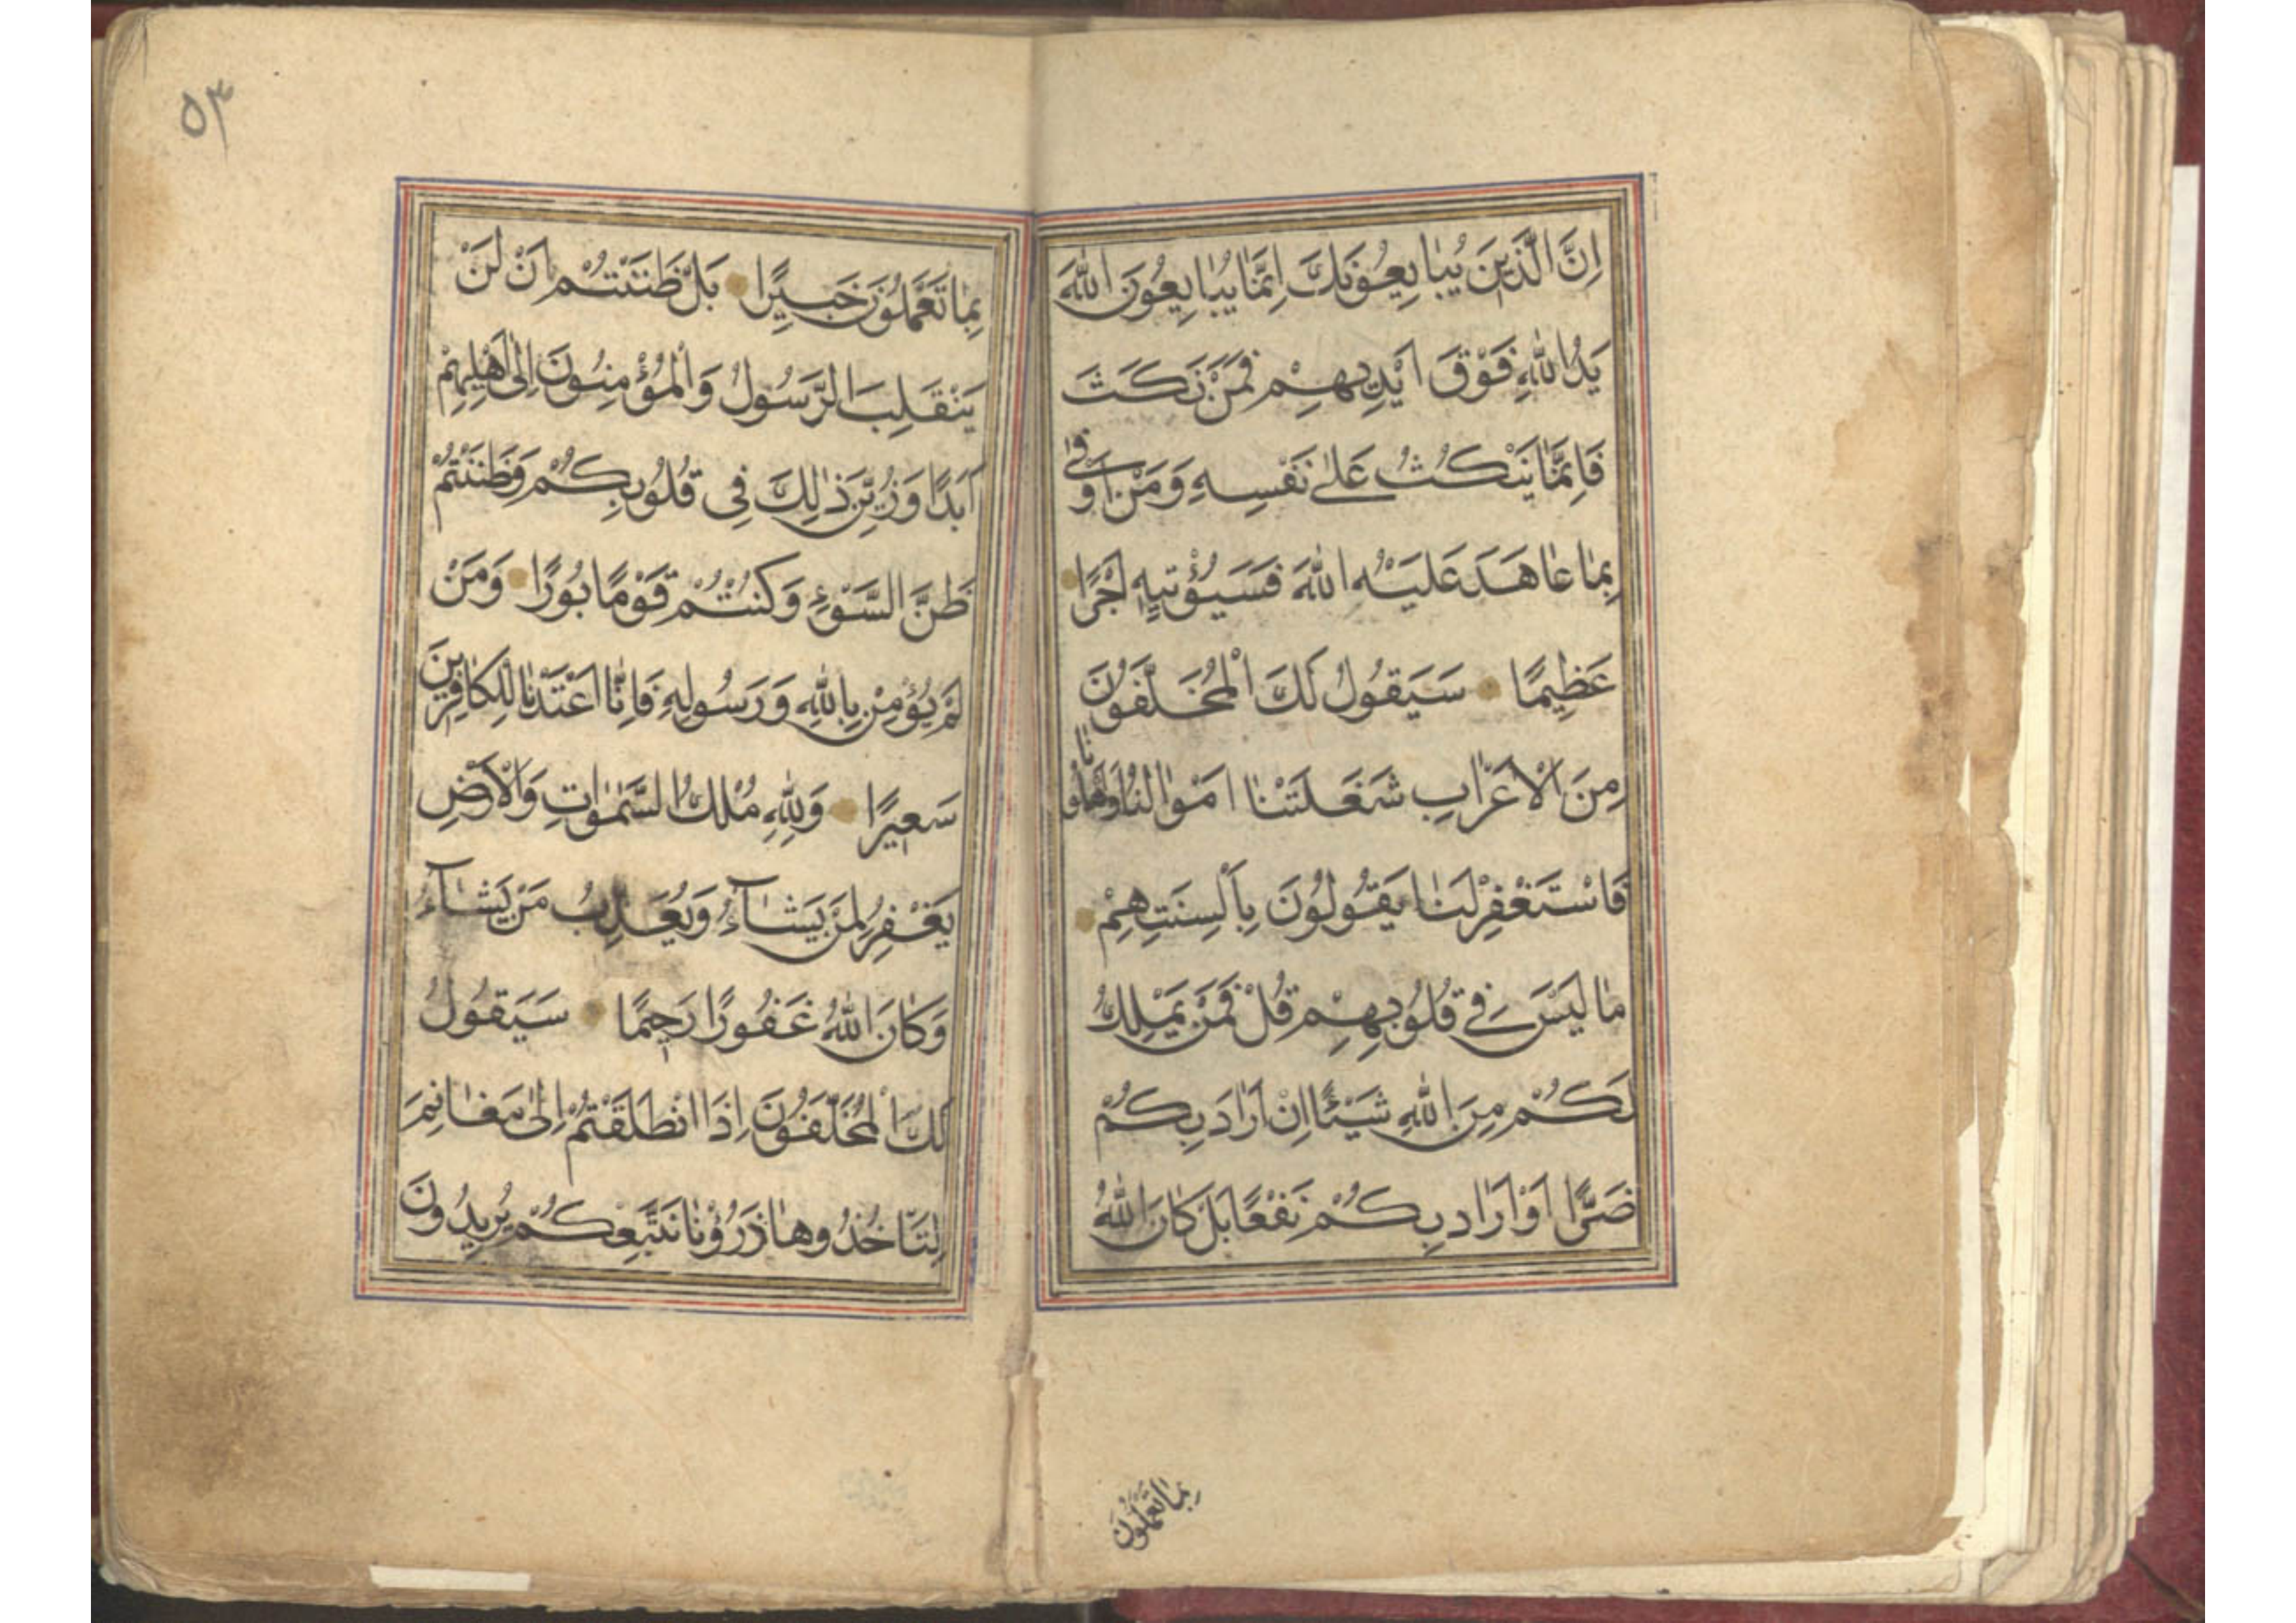 اِنَّ الَّذِينَ يُبَايِعُونَكَ اِنَّمَا يُبَايِعُونَ اللّٰهَ
يَدُ اللّٰهِ فَوْقَ اَيْدِيهِمْ فَمَنْ نَكَثَ
فَاِنَّمَا يَنْكُثُ عَلٰى نَفْسِهِ وَمَنْ اَوْفٰى
بِمَا عَاهَدَ عَلَيْهُ اللّٰهَ فَسَيُؤْتِيهِ اَجْرًا
عَظِيمًا سَيَقُولُ لَكَ الْمُخَلَّفُونَ
مِنَ الْاَعْرَابِ شَغَلَتْنَا اَمْوَالُنَا وَاَهْلُونَا
فَاسْتَغْفِرْ لَنَا يَقُولُونَ بِاَلْسِنَتِهِمْ
مَا لَيْسَ فِي قُلُوبِهِمْ قُلْ فَمَنْ يَمْلِكُ
لَكُمْ مِنَ اللّٰهِ شَيْئًا اِنْ اَرَادَ بِكُمْ
ضَرًّا اَوْ اَرَادَ بِكُمْ نَفْعًا بَلْ كَانَ اللّٰهُ
بما تعملون
٥٣
بِمَا تَعْمَلُونَ خَبِيرًا بَلْ ظَنَنْتُمْ اَنْ لَنْ
يَنْقَلِبَ الرَّسُولُ وَالْمُؤْمِنُونَ اِلٰى اَهْلِيهِمْ
اَبَدًا وَزُيِّنَ ذٰلِكَ فِي قُلُوبِكُمْ وَظَنَنْتُمْ
ظَنَّ السَّوْءِ وَكُنْتُمْ قَوْمًا بُورًا وَمَنْ
لَمْ يُؤْمِنْ بِاللّٰهِ وَرَسُولِهِ فَاِنَّا اَعْتَدْنَا لِلْكَافِرِينَ
سَعِيرًا وَلِلّٰهِ مُلْكُ السَّمٰوَاتِ وَالْاَرْضِ
يَغْفِرُ لِمَنْ يَشَآءُ وَيُعَذِّبُ مَنْ يَشَآءُ
وَكَانَ اللّٰهُ غَفُورًا رَحِيمًا سَيَقُولُ
لَكَ الْمُخَلَّفُونَ اِذَا انْطَلَقْتُمْ اِلٰى مَغَانِمَ
لِتَاْخُذُوهَا ذَرُوْنَا نَتَّبِعْكُمْ يُرِيدُونَ